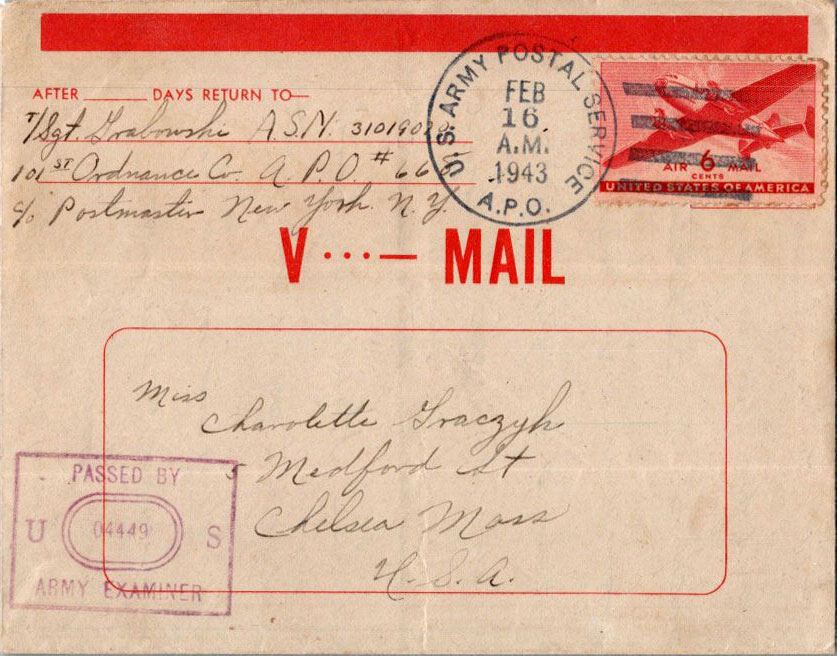 AFTER ______ DAYS RETURN TO—
T/Sgt. Grabowski A.S.N.
101ST Ordnance Co. A.P.O. #
c/o Postmaster New York. N.Y.
U.S. ARMY POSTAL SERVICE
FEB
16
A.M.
1943
A.P.O.
AIR 6 MAIL
CENTS
UNITED STATES OF AMERICA
V ···— MAIL
Miss
Charolette Graczyk
5 Medford St
Chelsea Mass
U.S.A.
PASSED BY
U 04449 S
ARMY EXAMINER